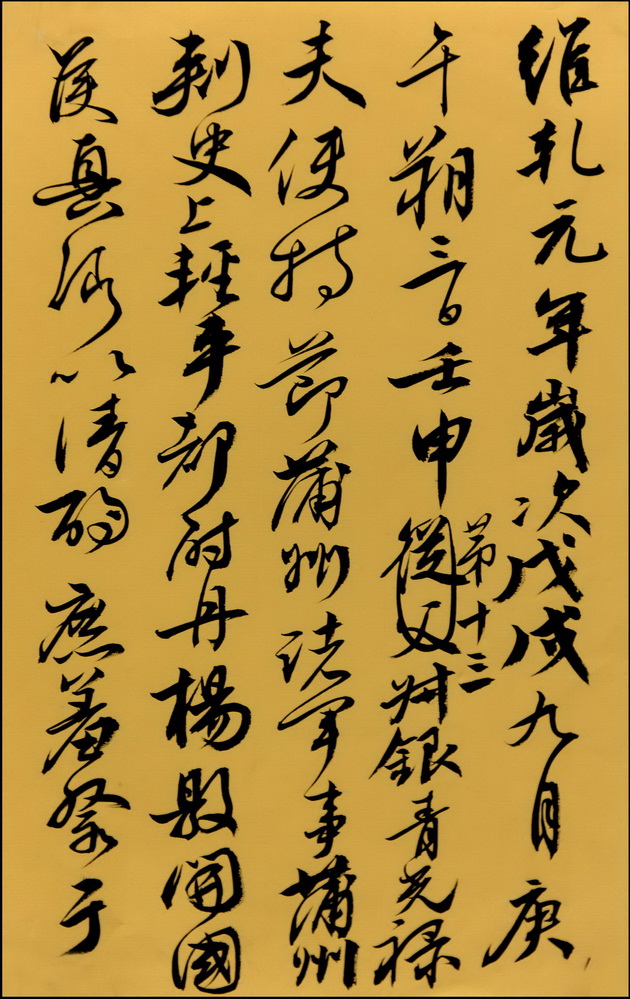 維乾元年歲次戊戌九月庚
午朔三日壬申第十三從父叔銀青光祿
夫使持節蒲州諸軍事蒲州
刺史上輕車都尉丹楊縣開國
侯真卿以清酌庶羞祭于